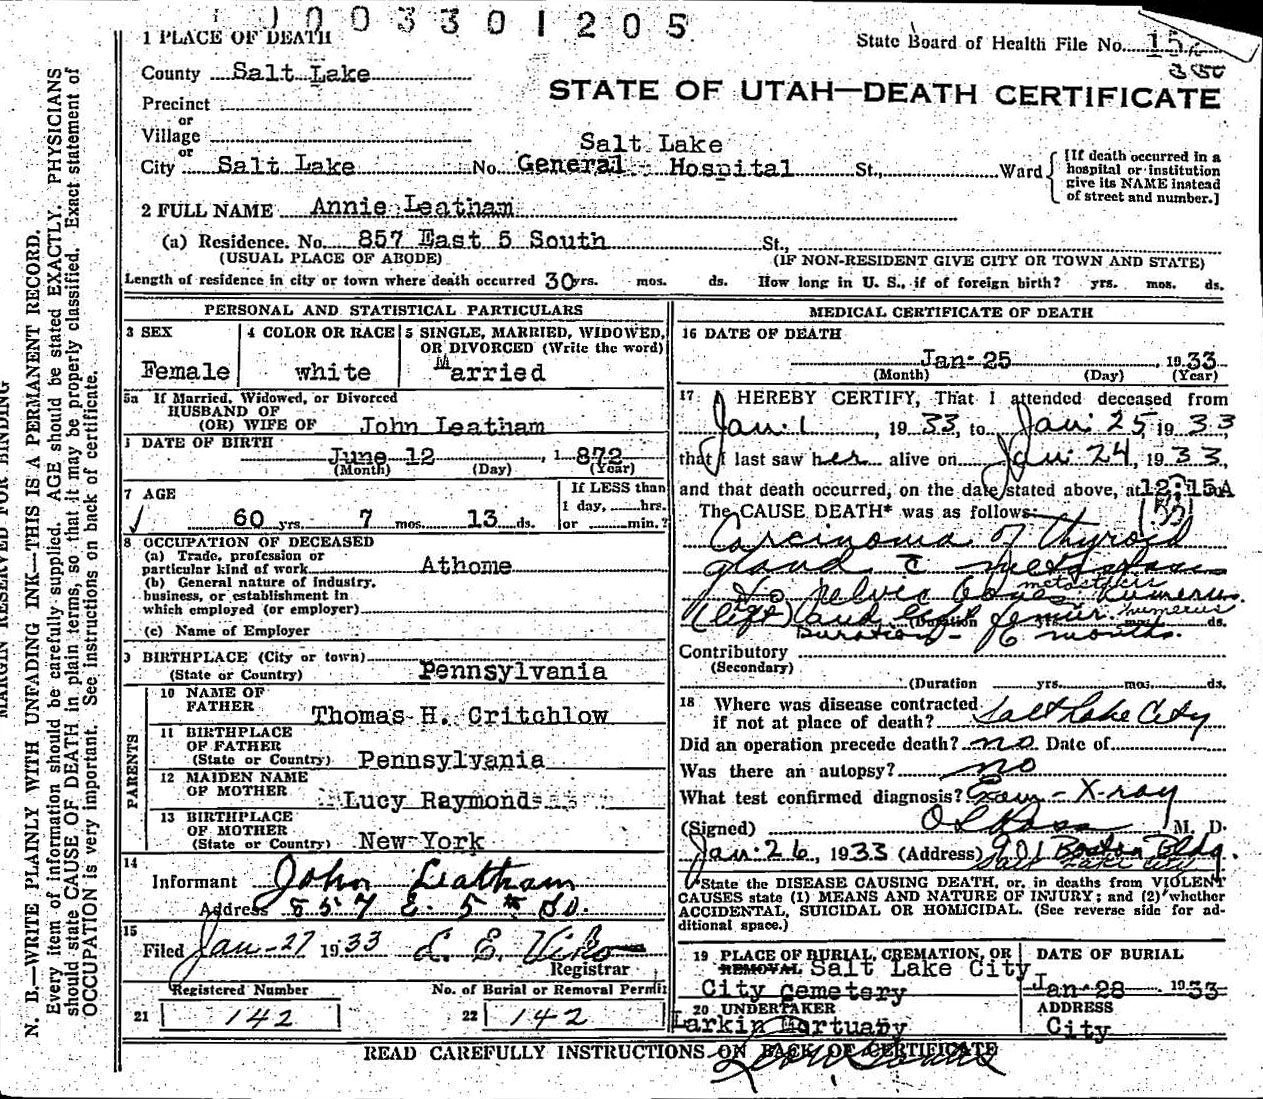 1003301205
1 PLACE OF DEATH
State Board of Health File No. 
350
County Salt Lake
STATE OF UTAH—DEATH CERTIFICATE
Precinct
or
Village
or
City Salt Lake No. Salt Lake General Hospital St., Ward
[If death occurred in a
hospital or institution
give its NAME instead
of street and number.]
2 FULL NAME Annie Leatham
(a) Residence. No. 857 East 5 South St.,
(USUAL PLACE OF ABODE) (IF NON-RESIDENT GIVE CITY OR TOWN AND STATE)
Length of residence in city or town where death occurred 30 yrs. mos. ds. How long in U. S., if of foreign birth? yrs. mos. ds.
PERSONAL AND STATISTICAL PARTICULARS
3 SEX
Female
4 COLOR OR RACE
white
5 SINGLE, MARRIED, WIDOWED,
OR DIVORCED (Write the word)
Married
5a If Married, Widowed, or Divorced
HUSBAND OF
(OR) WIFE OF John Leatham
DATE OF BIRTH
June 12, 1872
(Month) (Day) (Year)
7 AGE
60 yrs. 7 mos. 13 ds.
If LESS than
1 day, hrs.
or min.?
8 OCCUPATION OF DECEASED
(a) Trade, profession or
particular kind of work Athome
(b) General nature of industry,
business, or establishment in
which employed (or employer)
(c) Name of Employer
9 BIRTHPLACE (City or town)
(State or Country) Pennsylvania
PARENTS
10 NAME OF
FATHER Thomas H. Critchlow
11 BIRTHPLACE
OF FATHER
(State or Country) Pennsylvania
12 MAIDEN NAME
OF MOTHER Lucy Raymond
13 BIRTHPLACE
OF MOTHER
(State or Country) New York
14
Informant John Leatham
Address 857 E. 5th So.
15
Filed Jan-27 1933
Registrar
Registered Number
21 142
No. of Burial or Removal Permit
22 142
MEDICAL CERTIFICATE OF DEATH
16 DATE OF DEATH
Jan-25, 1933
(Month) (Day) (Year)
17 I HEREBY CERTIFY, That I attended deceased from
Jan. 1, 1933, to Jan. 25, 1933
that I last saw her alive on Jan. 24, 1933,
and that death occurred, on the date stated above, at 12:15A
The CAUSE DEATH* was as follows:
Carcinoma of thyroid
gland c metastases
to pelvic bones humerus
metastasis
(left) and left femur. humerus
(Duration yrs. mos. ds.
Duration - 6 months.
Contributory
(Secondary)
(Duration yrs. mos. ds.
18 Where was disease contracted
if not at place of death? Salt Lake City
Did an operation precede death? no Date of
Was there an autopsy? no
What test confirmed diagnosis? Exam - X-ray
(Signed) M. D.
Jan. 26, 1933 (Address) 901 Boston Bldg.
Salt Lake City
(*State the DISEASE CAUSING DEATH, or, in deaths from VIOLENT
CAUSES state (1) MEANS AND NATURE OF INJURY; and (2) whether
ACCIDENTAL, SUICIDAL OR HOMICIDAL. (See reverse side for ad-
ditional space.)
19 PLACE OF BURIAL, CREMATION, OR
REMOVAL Salt Lake City
City Cemetery
DATE OF BURIAL
Jan-28 1933
20 UNDERTAKER
Larkin Mortuary
ADDRESS
City
READ CAREFULLY INSTRUCTIONS ON BACK OF CERTIFICATE
MARGIN RESERVED FOR BINDING
N. B.—WRITE PLAINLY WITH UNFADING INK—THIS IS A PERMANENT RECORD.
Every item of information should be carefully supplied. AGE should be stated EXACTLY. PHYSICIANS
should state CAUSE OF DEATH in plain terms, so that it may be properly classified. Exact statement of
OCCUPATION is very important. See instructions on back of certificate.